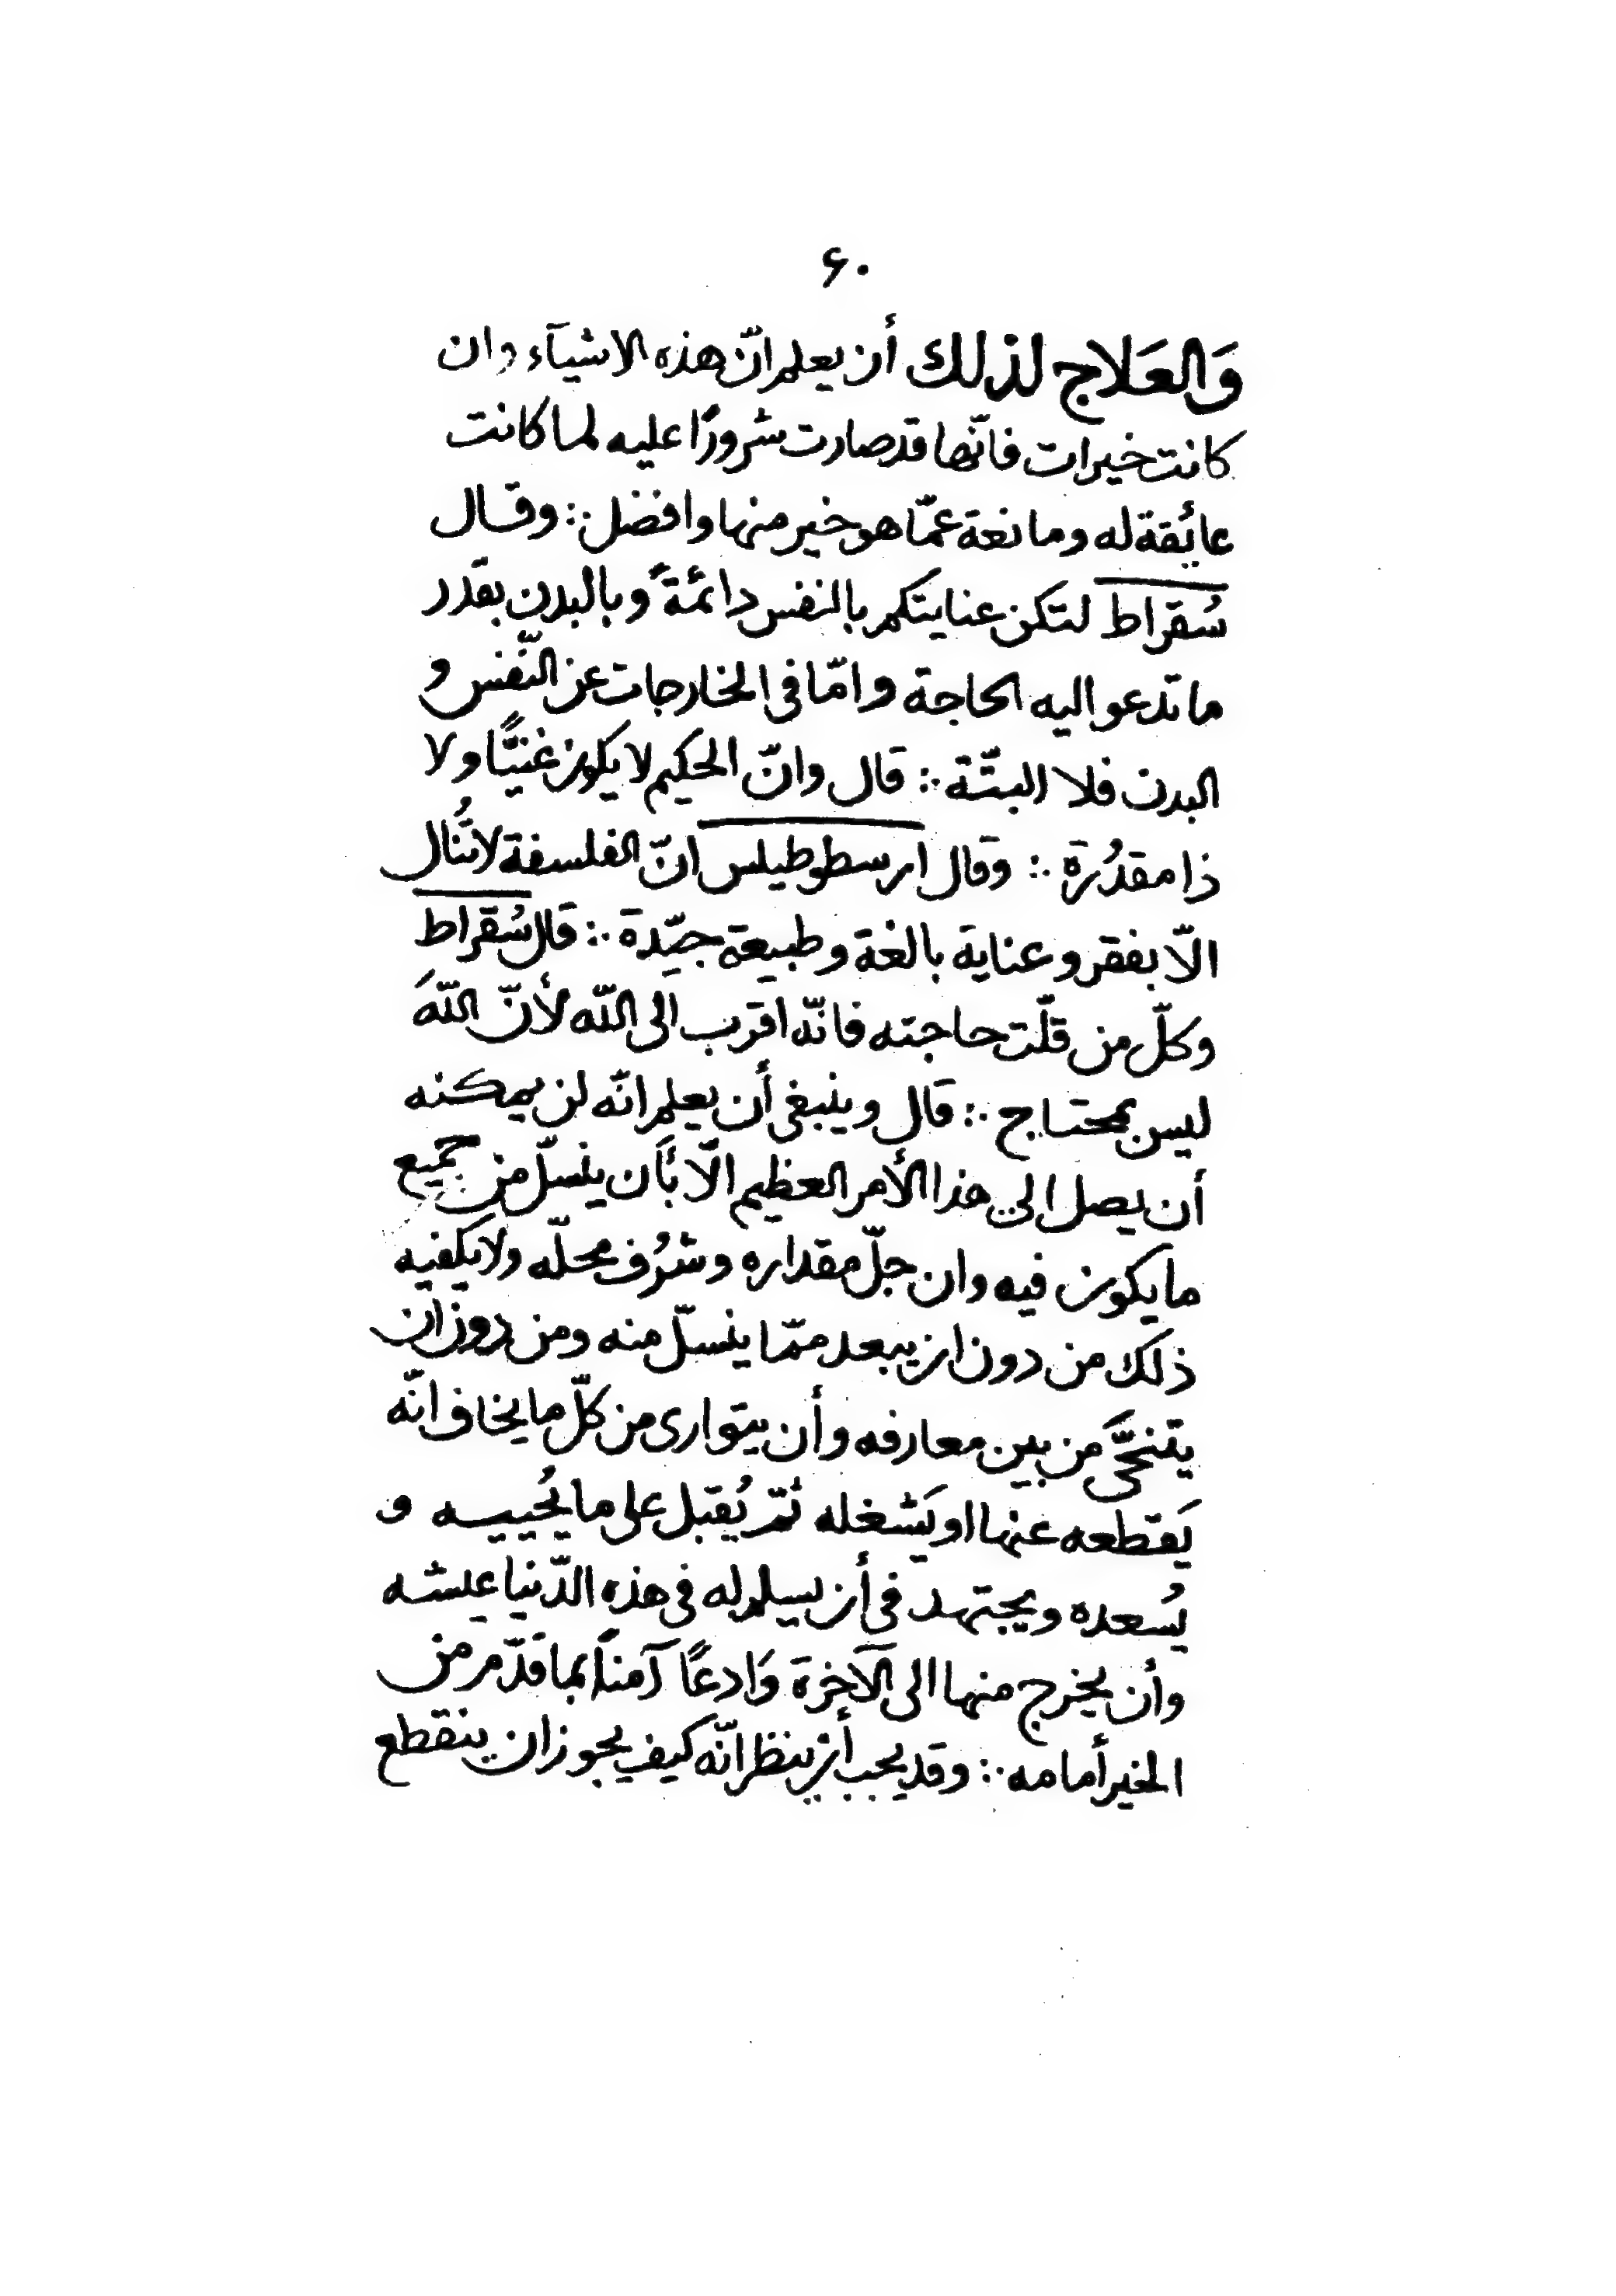 ۶۰
وَالعَلاج لذلك أن يعلم انّ هذه الاشيآء وان
كانت خيرات فانّها قد صارت شرورًا عليه لما كانت
عائقة له ومانعة عمّا هو خير منها وافضل ∴ وقال
سُقراط لتكن عنايتكم بالنفس دائمةً وبالبدن بقدر
ما تدعو اليه الحاجة وامّا فى الخارجات عن النّفس و
البدن فلا البتّة ∴ قال وانّ الحكيم لا يكون غنيًّا ولا
ذا مقدُرة ∴ وقال ارسطوطيلس انّ الفلسفة لا تُنال
الّا بفقر وعناية بالغة وطبيعة جيّدة ∴ قال سُقراط
وكلّ من قلّت حاجته فانّه اقرب الى اللّه لأنّ اللّهَ
ليس بمحتاج ∴ قال وينبغى أن يعلم انّه لن يمكنه
أن يصل الى هذا الأمر العظيم الّا بأَن ينسلّ من جميع
ما يكون فيه وان جلّ مقداره وشرُف محلّه ولا يكفيه
ذلك من دون ان يبعد ممّا ينسلّ منه ومن دون ان
يتنحَّى من بين معارفه وأن يتوارى من كلّ ما يخاف انّه
يَقطعه عنها او يَشغله ثمّ يُقبل على ما يُحييه و
يُسعده ويجتهد فى أن يسلم له فى هذه الدّنيا عيشه
وأن يخرج منها الى الآخرة وَادعًا آمناً بما قدّم من
الخير أمامه ∴ وقد يجب أن ينظر انّه كيف يجوز ان ينقطع